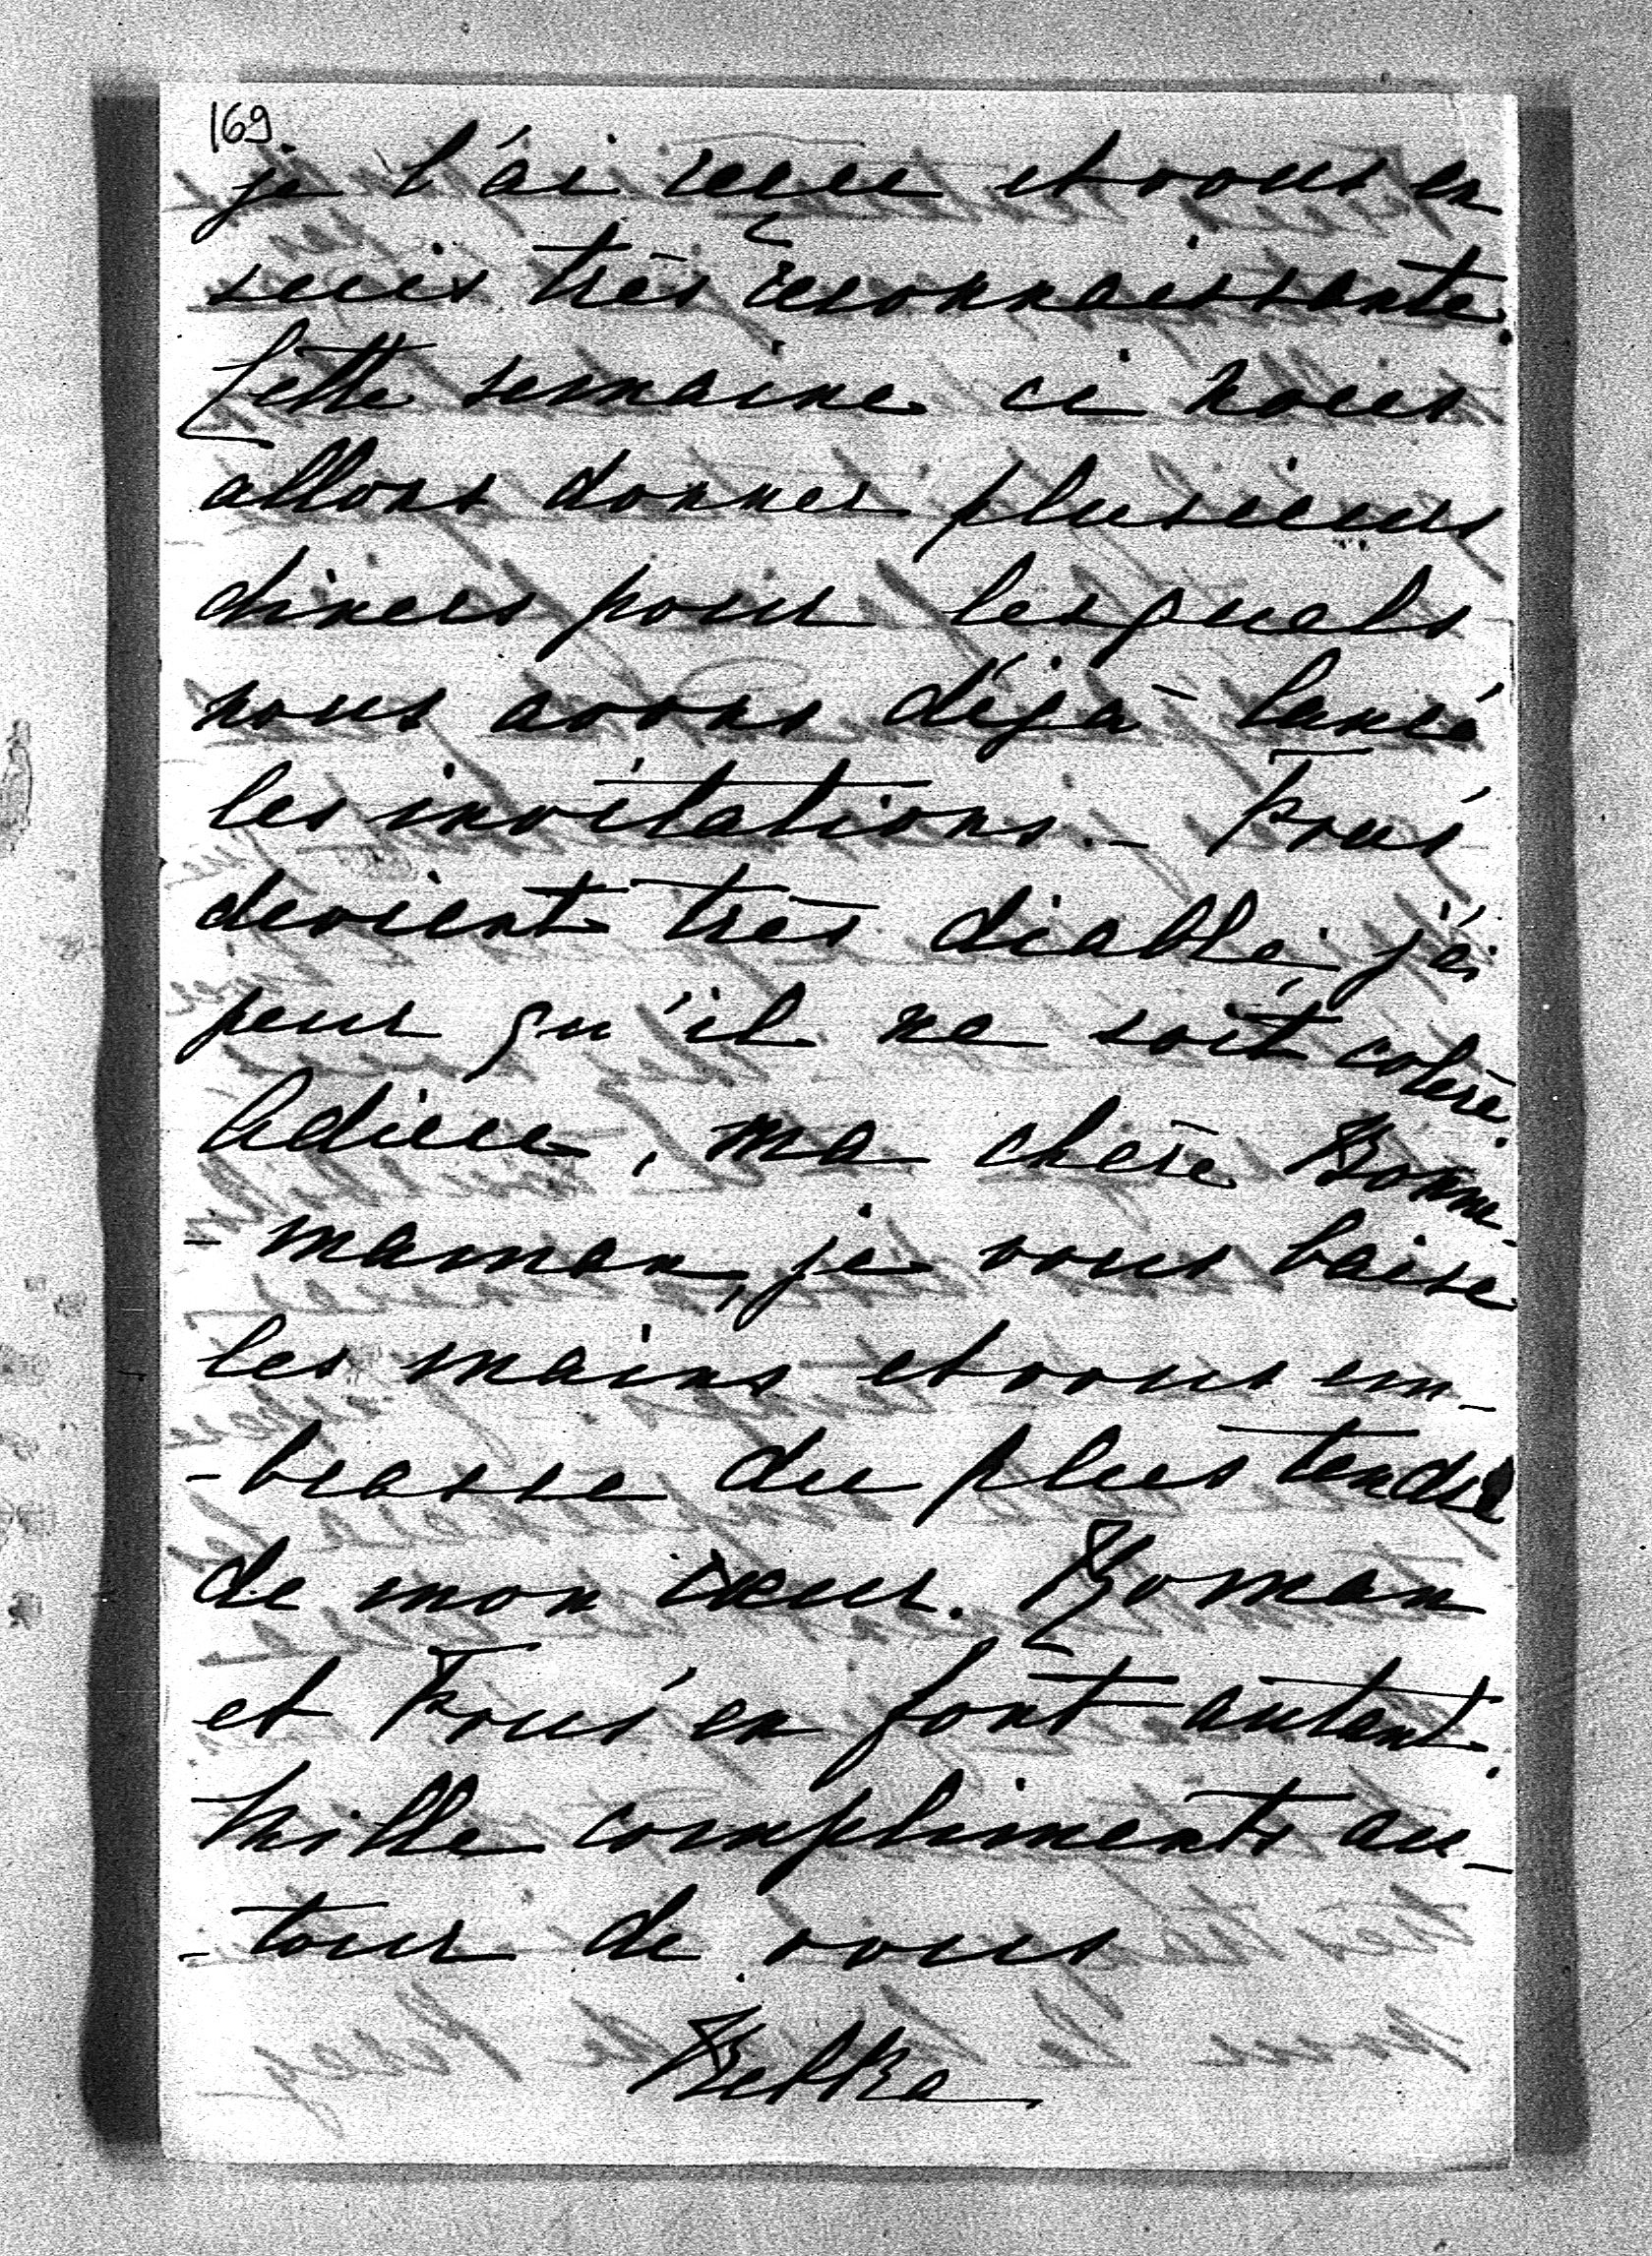 169.
je l'ai reçue et vous en
suis très reconnaissante.
Cette semaine ci nous
allons donner plusieurs
diners pour lesquels
nous avons déjà lancé
les invitations. - Trous'
devient très diable, j'ai
peur qu'il ne soit colère.
Adieu, ma chère Bonne-
- maman, je vous baise
les mains et vous em-
- brasse du plus tendre
de mon cœur. Roman
et Trous' en font autant.
Mille compliments au-
- tour de vous
Betka